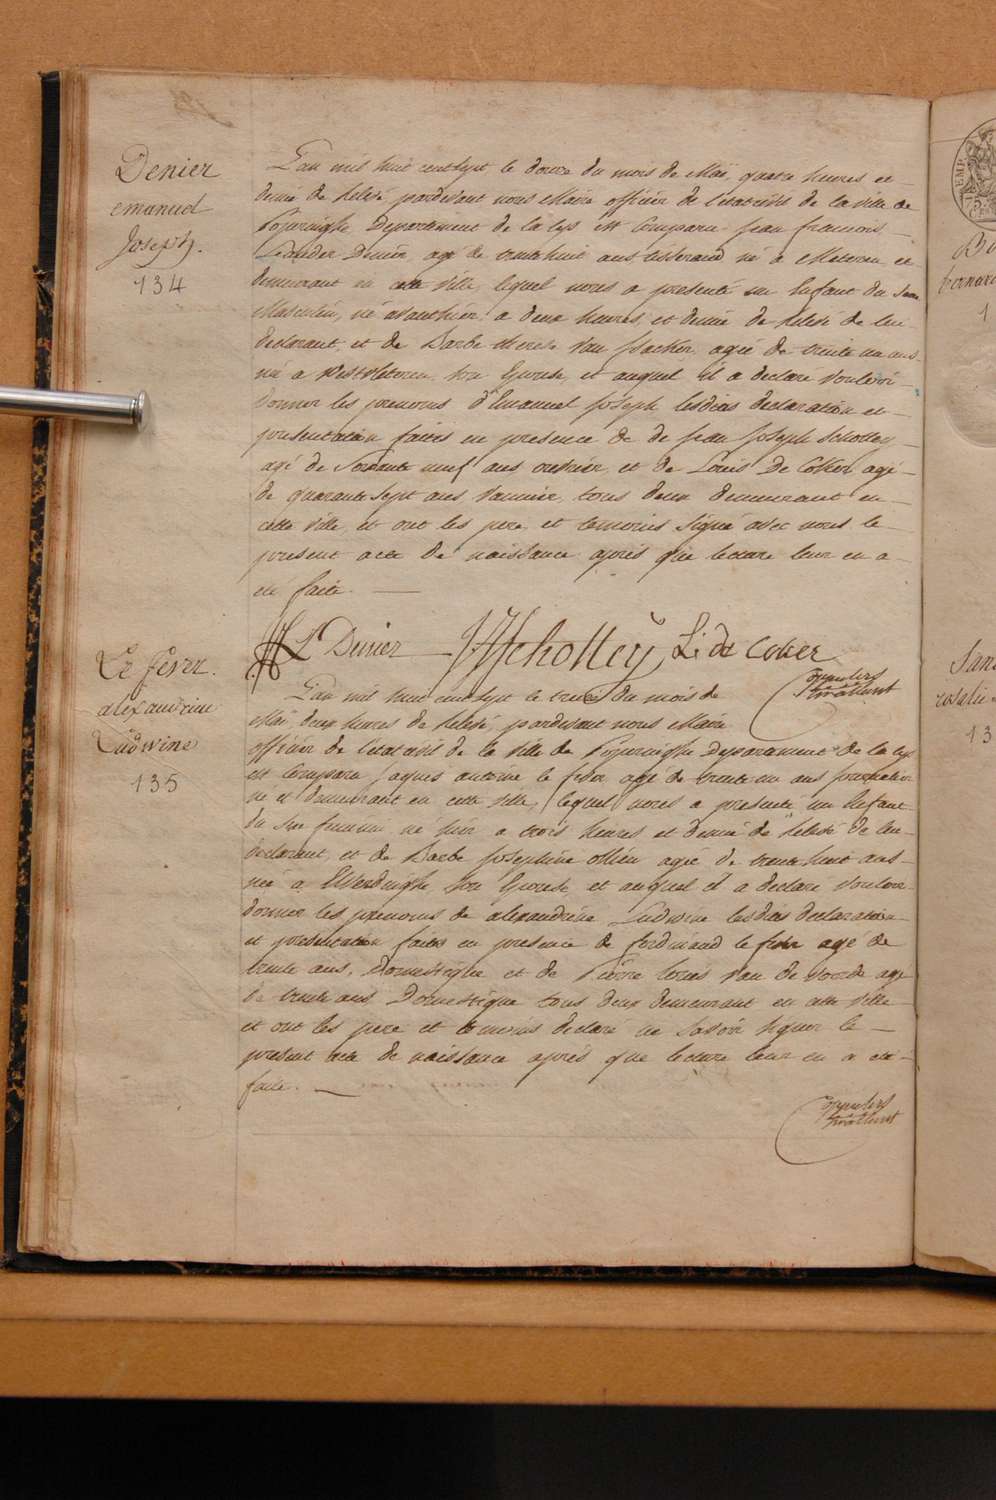 Denier
emanuel
Joseph.
134
L'an mil huit cent sept le douze du mois de Mai, quatre heures et
demie de Relevé pardevant nous Maire officier de l'etat civil de la ville de
Poperinghe Departement de la Lys est Comparu Jean francois
Leander Denier, agé de trente huit ans tisserand né a Meteren et
demeurant en cette ville, lequel nous a presenté un Enfant du Sexe
Masculin, né avanthier a deux heures et demie de Relevé de lui
declarant, et de Barbe therese Van agée de trente un ans
né a Westvleteren, son Epouse, et auquel il a declaré vouloir
donner les prenoms d'Emanuel Joseph lesdites declaration et
presentation faites en presence de de Jean Joseph Scholley
agé de Soixante neuf ans ouvrier, et de Louis De Coker agé
de quarante Sept ans vannier, tous deux demeurant en
cette ville et ont les pere et temoins Signé avec nous le
present acte de naissance après que lecture leur en a
eté faite.
Denier JJScholley L: de Coker
Le fever.
alexandrine
Ludwine
135
L'an mil huit cent sept le treize du mois de
Mai deux heures de Relevé, pardevant nous Maire
officier de l'etat civil de la ville de Poperinghe Departement de la Lys
est Comparu Jaques antoine le fever agé de trente un ans journalier
né et demeurant en cette ville, lequel nous a presenté un Enfant
du Sexe feminin né hier a trois heures et demie de Relevé de lui
declarant, et de Barbe Josephine ollieu agée de trente huit ans
née a Elverdinghe, son Epouse, et auquel il a declaré vouloir
donner les prenoms de alexandrine Ludwine lesdites declaration
et presentation faites en presence de ferdinand le fever agé de
trente ans, Domestique et de Pierre Van de agé
de trente ans Domestique tous deux demeurant en cette ville
et ont les pere et temoins declaré ne Savoir Signer le
present acte de naissance après que lecture leur en a eté
faite.